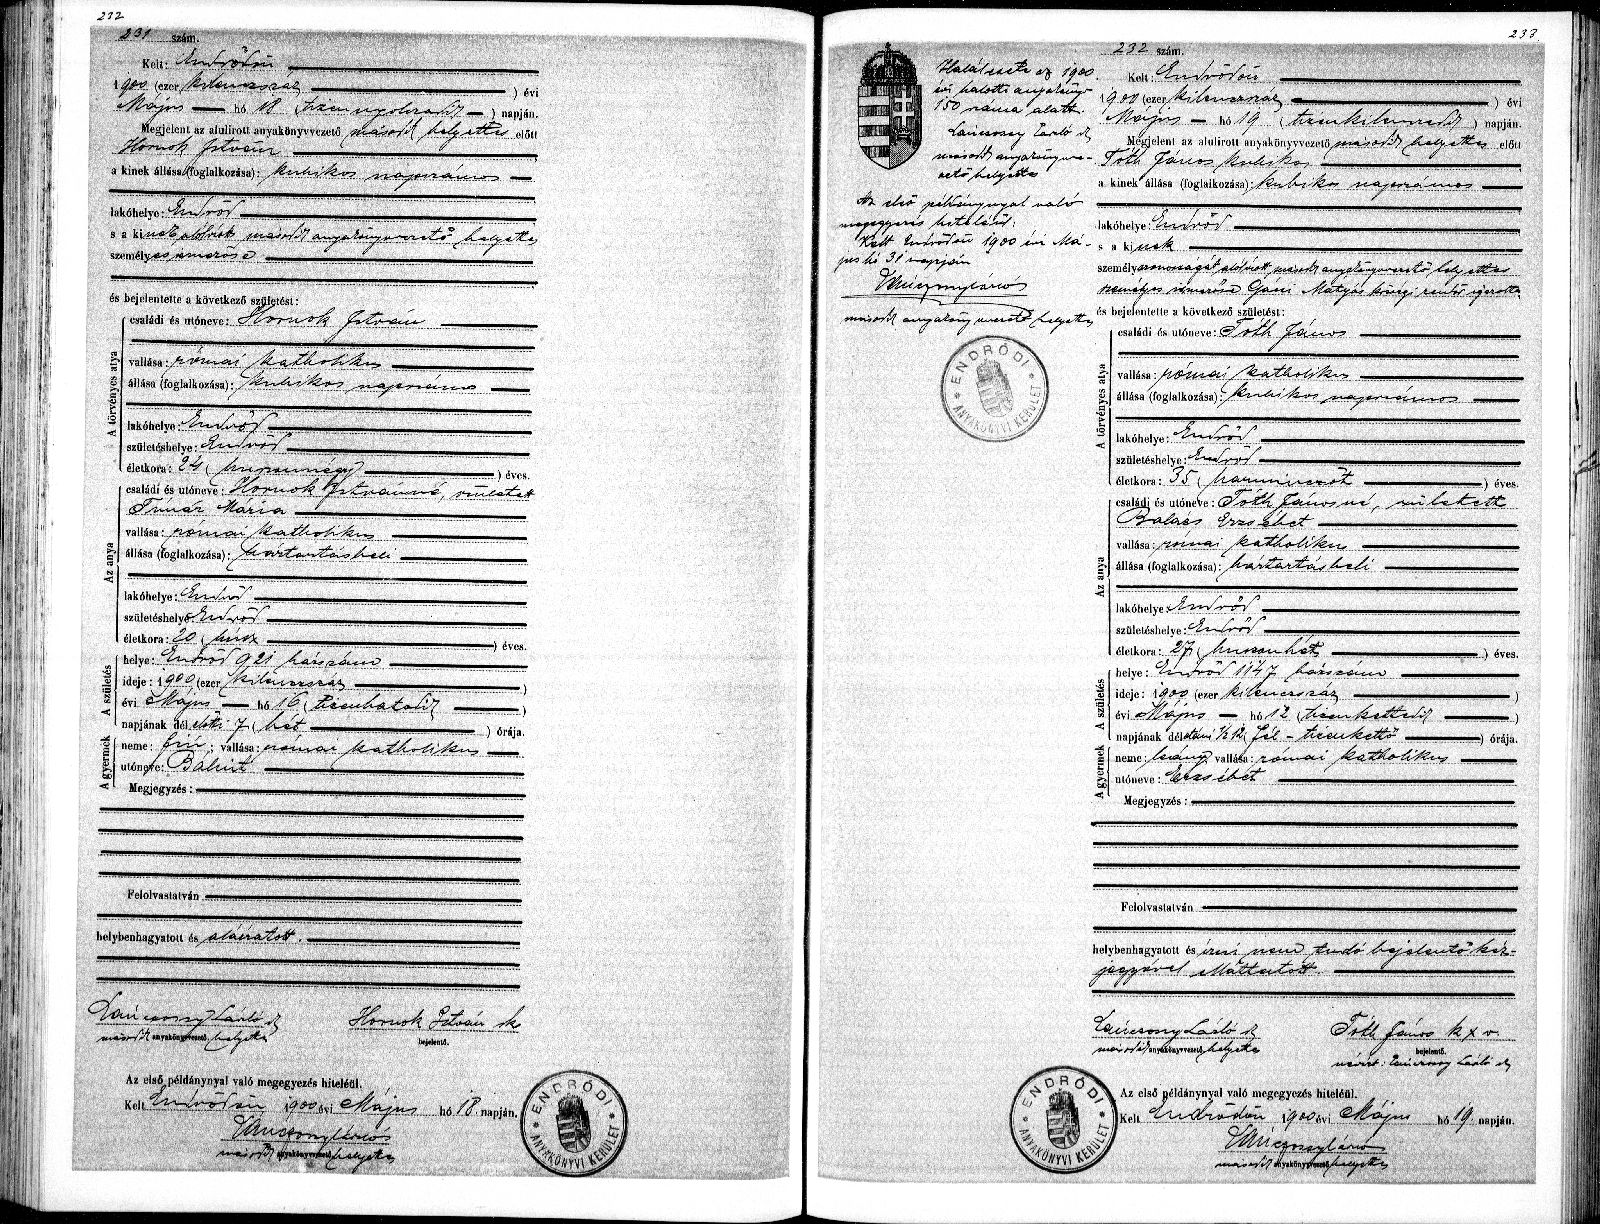 232
231 szám.
Kelt: Endrődön
1900 (ezer kilenczszáz ) évi
Május hó 18 (tizennyolczadik ) napján.
Megjelent az alulirott anyakönyvvezető második helyettes előtt
Hornok István
a kinek állása (foglalkozása): kubikos napszámos
lakóhelye: Endrőd
s a kinek alólirott második anyakönyvvezető helyettes
személyes ismerőse
és bejelentette a következő születést:
A törvényes atya
családi és utóneve: Hornok István
vallása: római katholikus
állása (foglalkozása): kubikos napszámos
lakóhelye: Endrőd
születéshelye: Endrőd
életkora: 24 (huszonnégy ) éves.
Az anya
családi és utóneve: Hornok Istvánné, született
Timár Mária
vallása: római katholikus
állása (foglalkozása): háztartásbeli
lakóhelye: Endrőd
születéshelye: Endrőd
életkora: 20 (húsz ) éves.
A születés
helye: Endrőd 921 házszám
ideje: 1900 (ezer kilenczszáz )
évi Május hó 16 (tizenhatodik )
napjának dél előtti 7 (hét ) órája.
A gyermek
neme: fiu; vallása: római katholikus
utóneve: Bálint
Megjegyzés:
Felolvastatván
helybenhagyatott és aláiratott.
Lánczsony László sk
második anyakönyvvezető helyettes
Hornok István sk
bejelentő.
Az első példánynyal való megegyezés hiteléül.
Kelt Endrődön 1900 évi Május hó 18. napján.
második anyakönyvvezető helyettes
ENDRŐDI
ANYAKÖNYVI KERÜLET
233
Halálesete az 1900
évi halotti anyakönyv
150 száma alatt.
Lánczsony László sk
második anyakönyvve-
zető helyettes
Az első példánynyal való
megegyezés hiteléül.
Kelt Endrődön 1900 évi Má-
jus hó 31 napján
második anyakönyvvezető helyettes
ENDRŐDI
ANYAKÖNYVI KERÜLET
232 szám.
Kelt: Endrődön
1900 (ezer kilenczszáz ) évi
Május hó 19 (tizenkilenczedik ) napján.
Megjelent az alulirott anyakönyvvezető második helyettes előtt
Tóth János kubikos
a kinek állása (foglalkozása): kubikos napszámos
lakóhelye: Endrőd
s a kinek
személyazonosságát alólirott második anyakönyvvezető helyettes
személyes ismerőse Gácsi Mátyás községi rendőr igazolta
és bejelentette a következő születést:
A törvényes atya
családi és utóneve: Tóth János
vallása: római katholikus
állása (foglalkozása): kubikos napszámos
lakóhelye: Endrőd
születéshelye: Endrőd
életkora: 35 (harminczöt ) éves.
Az anya
családi és utóneve: Tóth Jánosné, született
Balázs Erzsébet
vallása: római katholikus
állása (foglalkozása): háztartásbeli
lakóhelye: Endrőd
születéshelye: Endrőd
életkora: 27 (huszonhét ) éves.
A születés
helye: Endrőd 1147 házszám
ideje: 1900 (ezer kilenczszáz )
évi Május hó 12 (tizenkettedik )
napjának délutáni ½12 (fél-tizenkettő ) órája.
A gyermek
neme: leány vallása: római katholikus
utóneve: Erzsébet
Megjegyzés:
Felolvastatván
helybenhagyatott és írni nem tudó bejelentő kéz-
jegyével elláttatott.
Lánczsony László sk
második anyakönyvvezető helyettes
Tóth János k x v
bejelentő.
névírt: Lánczsony László sk
Az első példánynyal való megegyezés hiteléül.
Kelt Endrődön 1900 évi Május hó 19. napján.
második anyakönyvvezető helyettes
ENDRŐDI
ANYAKÖNYVI KERÜLET